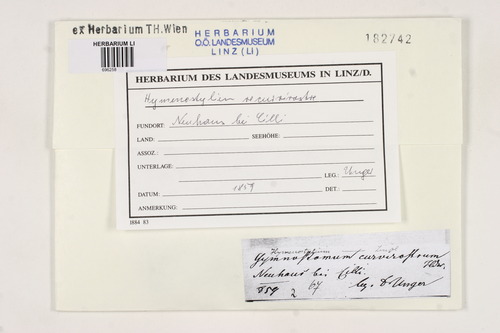 ex Herbarium TH.Wien
HERBARIUM
O.Ö. LANDESMUSEUM
LINZ (LI)
182742
HERBARIUM LI
HERBARIUM DES LANDESMUSEUMS IN LINZ/D.
Hymenostylium recurvirostre
FUNDORT: Neuhaus bei Cilli
LAND: SEEHÖHE:
ASSOZ.:
UNTERLAGE:
LEG.: Unger
DATUM: 1859 DET.:
ANMERKUNG:
1884 83
Hymenostylium
Gymnostomum curvirostrum
Neuhaus bei Cilli.
859 2 67 leg. Unger